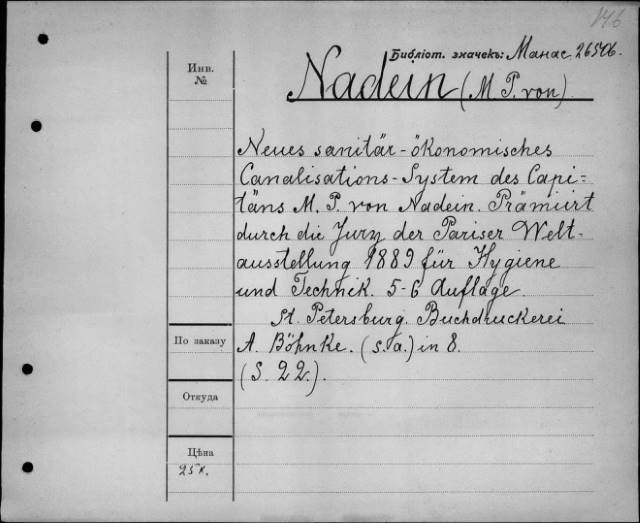 146
Библіот. значекъ: Манас. 26506.
Инв.
№
Nadein (M. P. von).
Neues sanitär-ökonomisches
Canalisations-System des Capi=
täns M. P. von Nadein. Prämiirt
durch die Jury der Pariser Welt-
ausstellung 1889 für Hygiene
und Technik. 5-6 Auflage.
St. Petersburg. Buchdruckerei
По заказу
A. Böhnke. (s. a.) in 8.
(S. 22.).
Откуда
Цѣна
25 к.